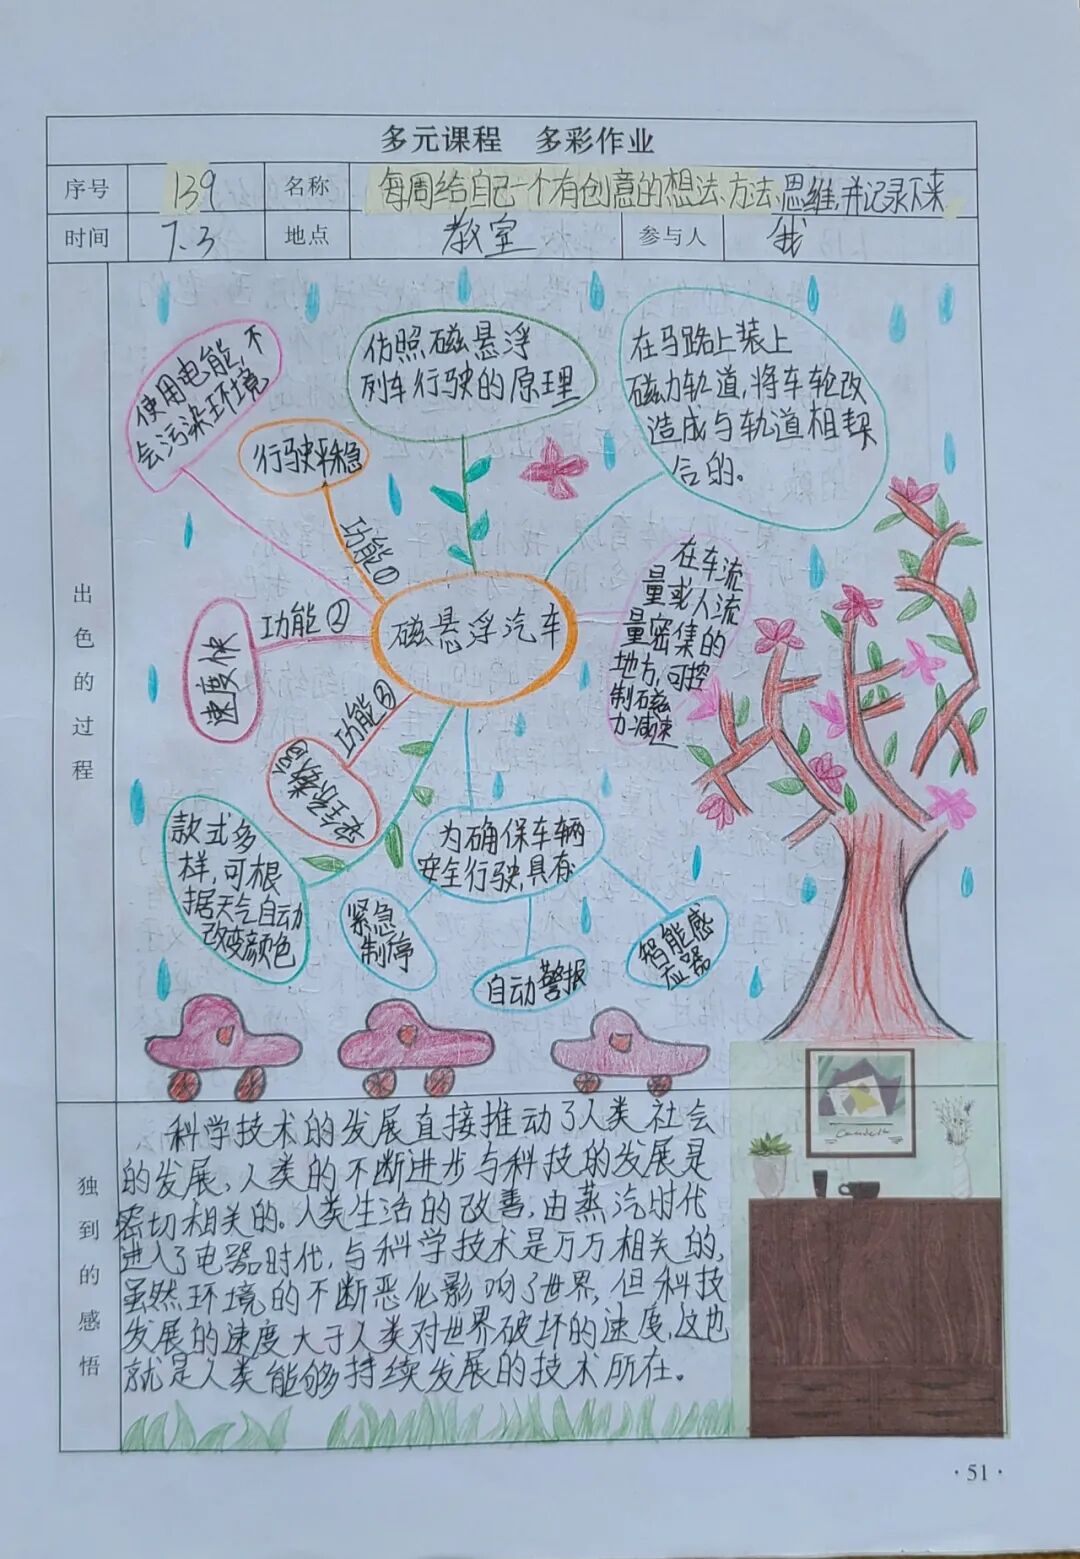 多元课程 多彩作业
序号 139 名称 每周给自己一个有创意的想法、方法、思维,并记录下来
时间 7.3 地点 教室 参与人 我
出色的过程
使用电能,不
会污染环境
仿照磁悬浮
列车行驶的原理
在马路上装上
磁力轨道,将车轮改
造成与轨道相契
合的。
行驶平稳
功能①
磁悬浮汽车
功能②
速度快
功能③
在车流
量或人流
量密集的
地方,可控
制磁
力减速
款式多
样,可根
据天气自动
改变颜色
为确保车辆
安全行驶,具有
紧急
制停
自动警报
智能感
应器
独到的感悟
科学技术的发展直接推动了人类社会
的发展,人类的不断进步与科技的发展是
密切相关的。人类生活的改善,由蒸汽时代
进入了电器时代,与科学技术是万万相关的,
虽然环境的不断恶化影响了世界,但科技
发展的速度大于人类对世界破坏的速度,这也
就是人类能够持续发展的技术所在。
·51·